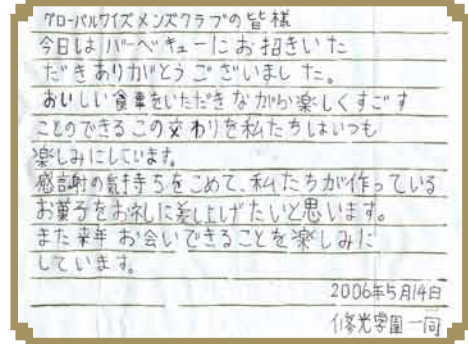 グローバルワイズメンズクラブの皆様
今日は バーベキューにお招きいた
だきありがとうございました。
おいしい食事をいただきながら楽しくすごす
ことのできるこの交わりを私たちはいつも
楽しみにしています。
感謝の気持ちをこめて、私たちが作っている
お菓子をお礼に差し上げたいと思います。
また来年 お会いできることを楽しみに
しています。
2006年5月14日
修光学園一同